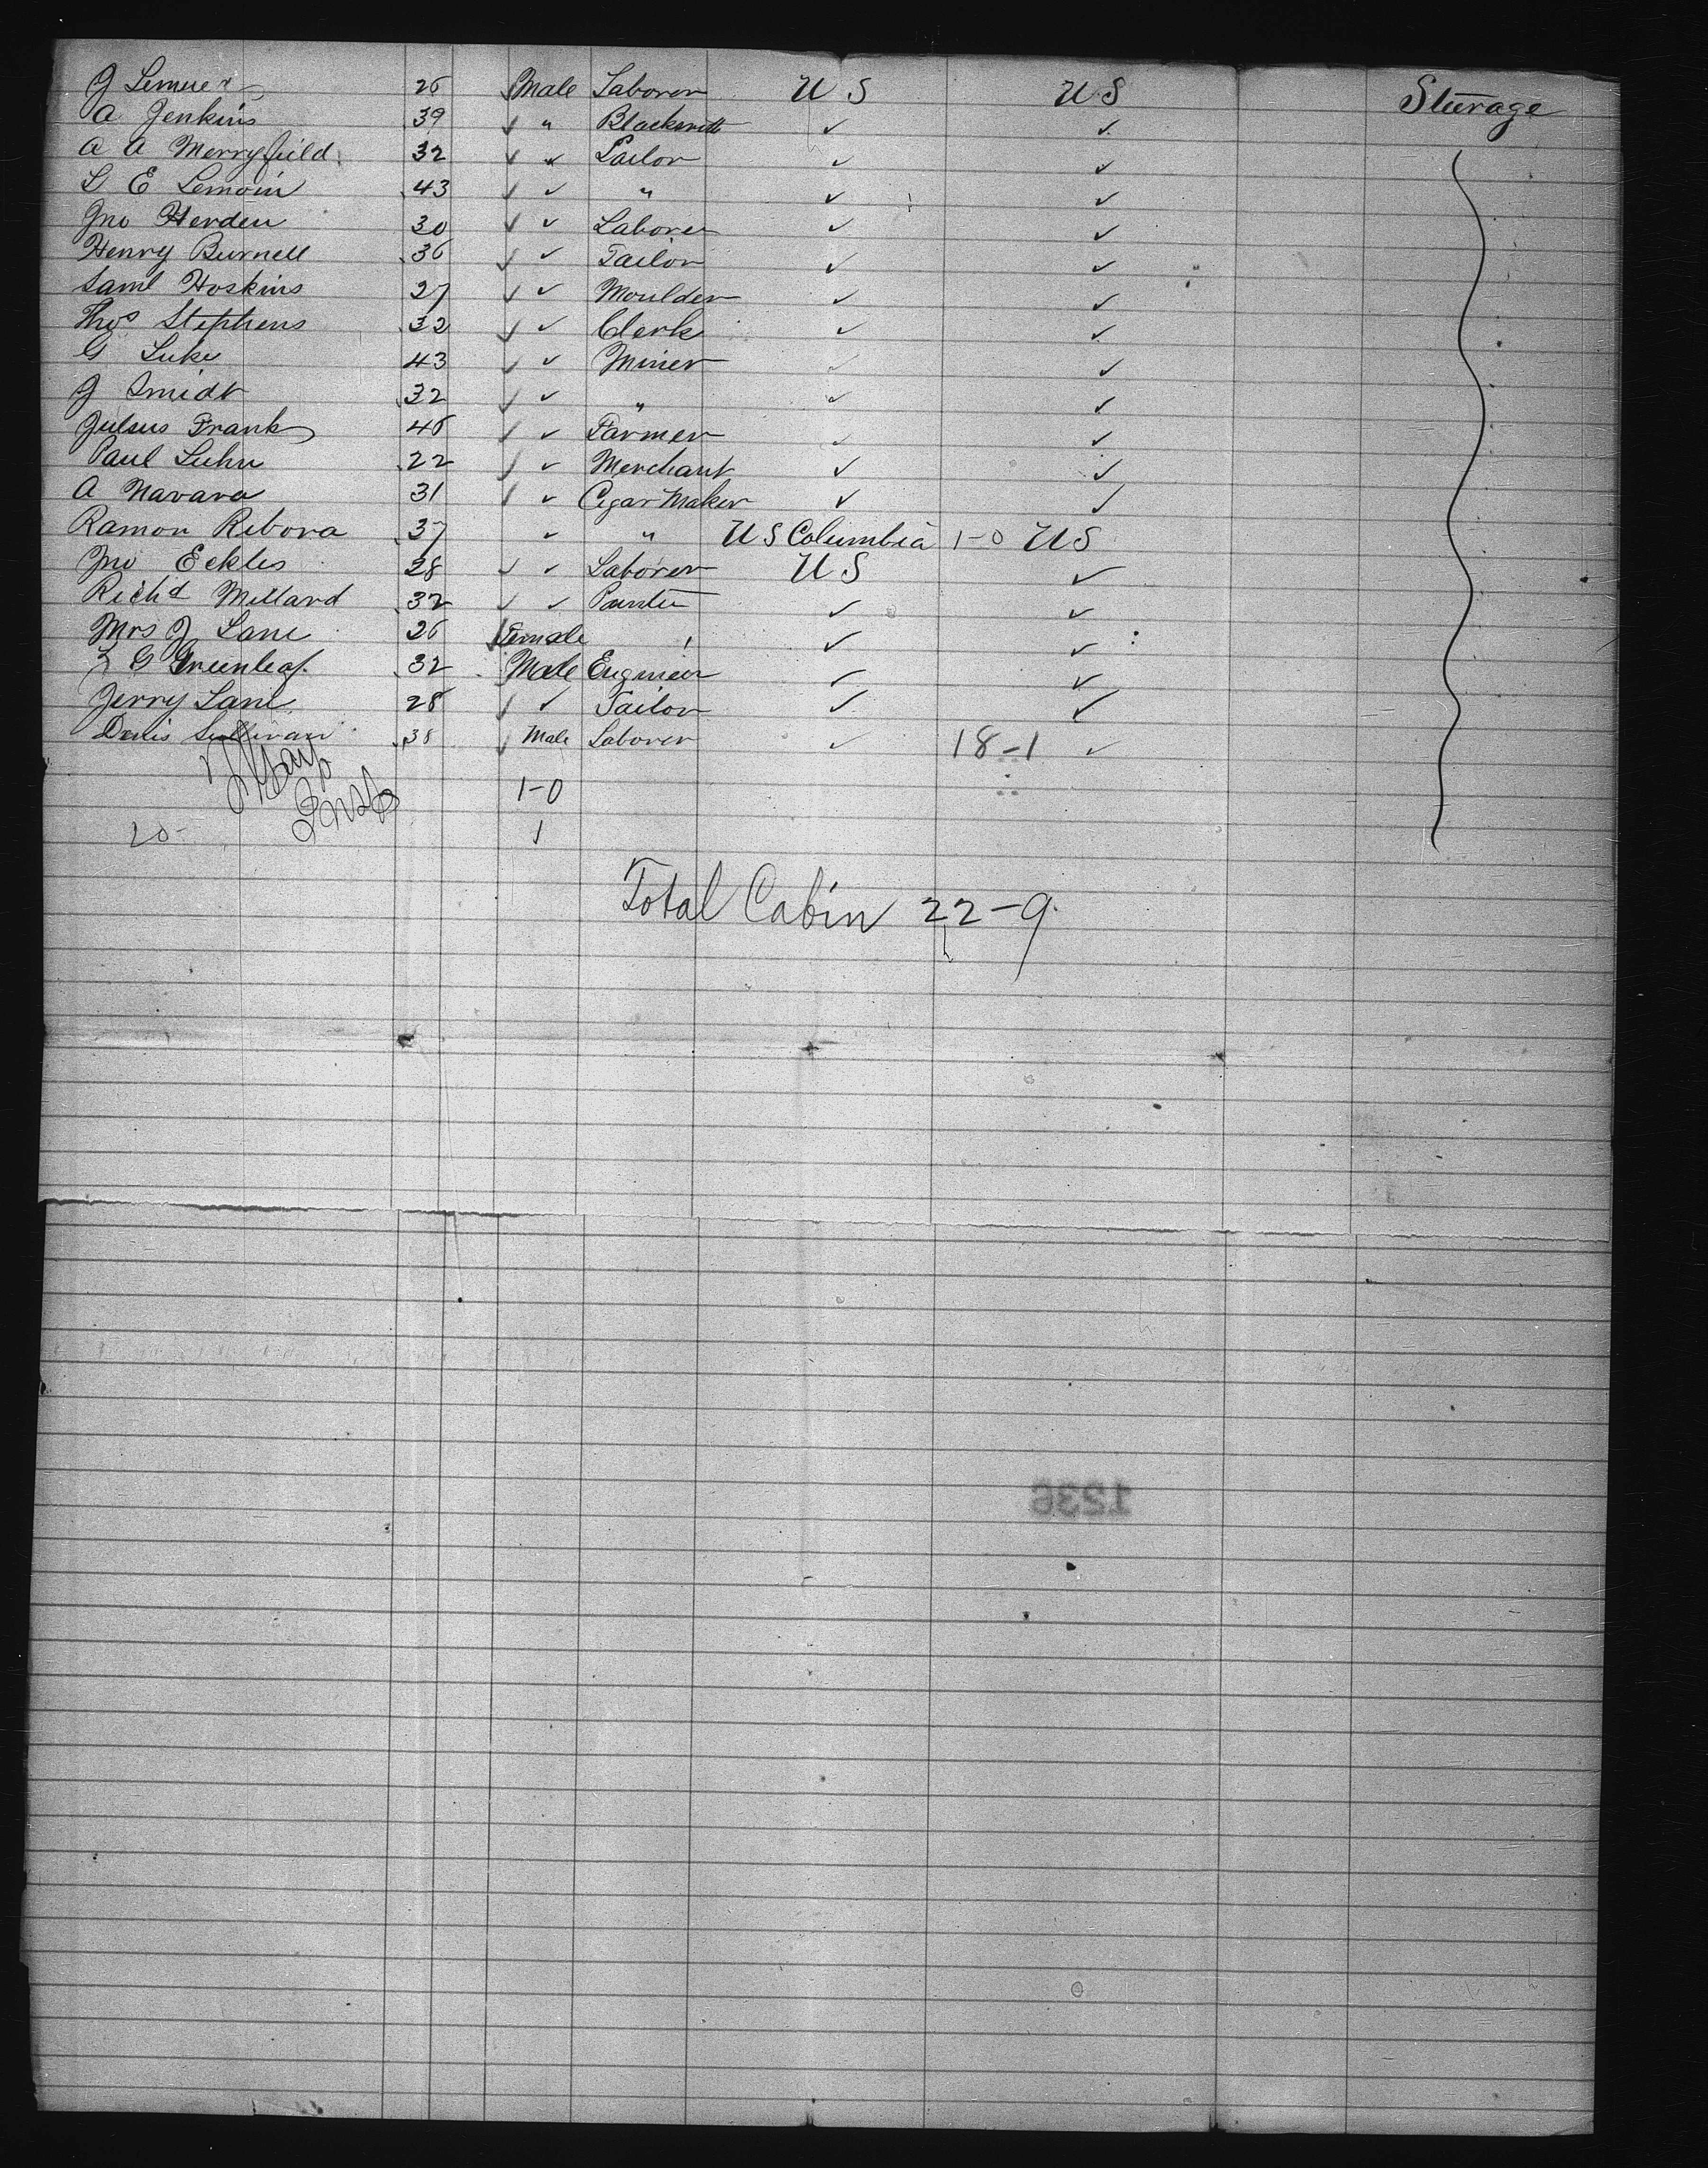 J 26 Male Laborer U S U S Steerage
A Jenkins 39 " Blacksmith
A A Merryfield 32 " Tailor
E Lemoin 43 "
Jno Herden 30 Laborer
Henry Burnell 36 Tailor
Saml Hoskins 27 Moulder
Thos Stephens 32 Clerk
G Luke 43 Miner
J Smidt 32 "
Julius Frank 46 Farmer
Paul Luhn 22 Merchant
A Navara 31 Cigar Maker
Ramon Ribora 37 " U S Columbia 1-0 U S
Jno Eckles 28 Laborer U S
Richd Millard 32 Painter
Mrs J Lane 26 Female
G Greenleaf 32 Male Engineer
Jerry Lane 28 Tailor
Denis Sullivan 38 Male Laborer 18-1
1-0
20- 1
Total Cabin 22-9
1236